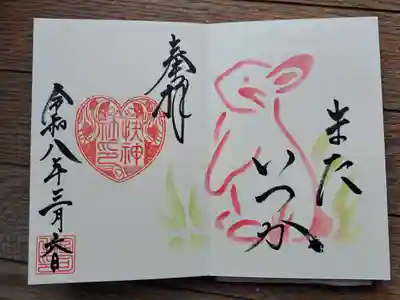 またいつか
奉拝
令和八年三月六日